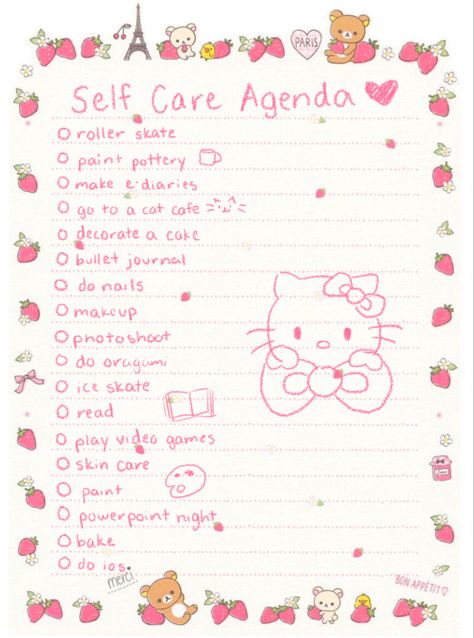 PARIS
Self Care Agenda
roller skate
paint pottery
make e-diaries
go to a cat cafe
decorate a cake
bullet journal
do nails
makeup
photoshoot
do oragami
ice skate
read
play video games
skin care
paint
powerpoint night
bake
do ios
merci
BON APPÉTIT